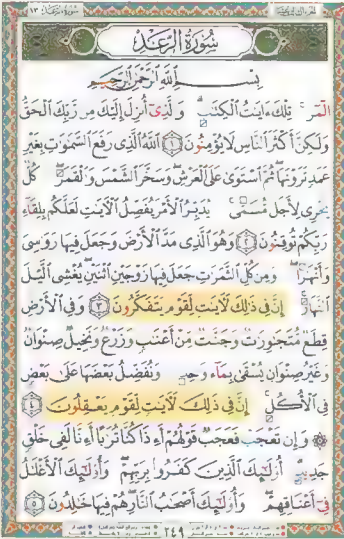 سُورَةُ الرَّعْدِ
بِسْمِ اللَّهِ الرَّحْمَٰنِ الرَّحِيمِ
الٓمٓر ۚ تِلْكَ ءَايَٰتُ ٱلْكِتَٰبِ ۗ وَٱلَّذِىٓ أُنزِلَ إِلَيْكَ مِن رَّبِّكَ ٱلْحَقُّ
وَلَٰكِنَّ أَكْثَرَ ٱلنَّاسِ لَا يُؤْمِنُونَ ١ ٱللَّهُ ٱلَّذِى رَفَعَ ٱلسَّمَٰوَٰتِ بِغَيْرِ
عَمَدٍ تَرَوْنَهَا ۖ ثُمَّ ٱسْتَوَىٰ عَلَى ٱلْعَرْشِ ۖ وَسَخَّرَ ٱلشَّمْسَ وَٱلْقَمَرَ ۖ كُلٌّ
يَجْرِى لِأَجَلٍ مُّسَمًّى ۚ يُدَبِّرُ ٱلْأَمْرَ يُفَصِّلُ ٱلْءَايَٰتِ لَعَلَّكُم بِلِقَآءِ
رَبِّكُمْ تُوقِنُونَ ٢ وَهُوَ ٱلَّذِى مَدَّ ٱلْأَرْضَ وَجَعَلَ فِيهَا رَوَٰسِىَ
وَأَنْهَٰرًا ۖ وَمِن كُلِّ ٱلثَّمَرَٰتِ جَعَلَ فِيهَا زَوْجَيْنِ ٱثْنَيْنِ ۖ يُغْشِى ٱلَّيْلَ
ٱلنَّهَارَ ۚ إِنَّ فِى ذَٰلِكَ لَءَايَٰتٍ لِّقَوْمٍ يَتَفَكَّرُونَ ٣ وَفِى ٱلْأَرْضِ
قِطَعٌ مُّتَجَٰوِرَٰتٌ وَجَنَّٰتٌ مِّنْ أَعْنَٰبٍ وَزَرْعٌ وَنَخِيلٌ صِنْوَانٌ
وَغَيْرُ صِنْوَانٍ يُسْقَىٰ بِمَآءٍ وَٰحِدٍ وَنُفَضِّلُ بَعْضَهَا عَلَىٰ بَعْضٍ
فِى ٱلْأُكُلِ ۚ إِنَّ فِى ذَٰلِكَ لَءَايَٰتٍ لِّقَوْمٍ يَعْقِلُونَ ٤
۞ وَإِن تَعْجَبْ فَعَجَبٌ قَوْلُهُمْ أَءِذَا كُنَّا تُرَٰبًا أَءِنَّا لَفِى خَلْقٍ
جَدِيدٍ ۗ أُو۟لَٰٓئِكَ ٱلَّذِينَ كَفَرُوا۟ بِرَبِّهِمْ ۖ وَأُو۟لَٰٓئِكَ ٱلْأَغْلَٰلُ
فِىٓ أَعْنَاقِهِمْ ۖ وَأُو۟لَٰٓئِكَ أَصْحَٰبُ ٱلنَّارِ ۖ هُمْ فِيهَا خَٰلِدُونَ ٥
٢٤٩